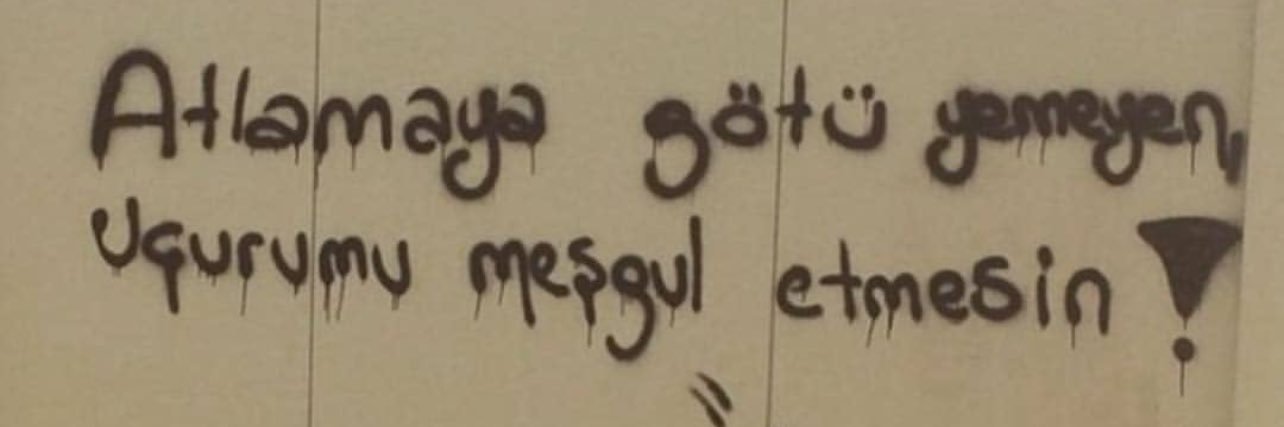 Atlamaya götü yemeyen,
Uçurumu meşgul etmesin!